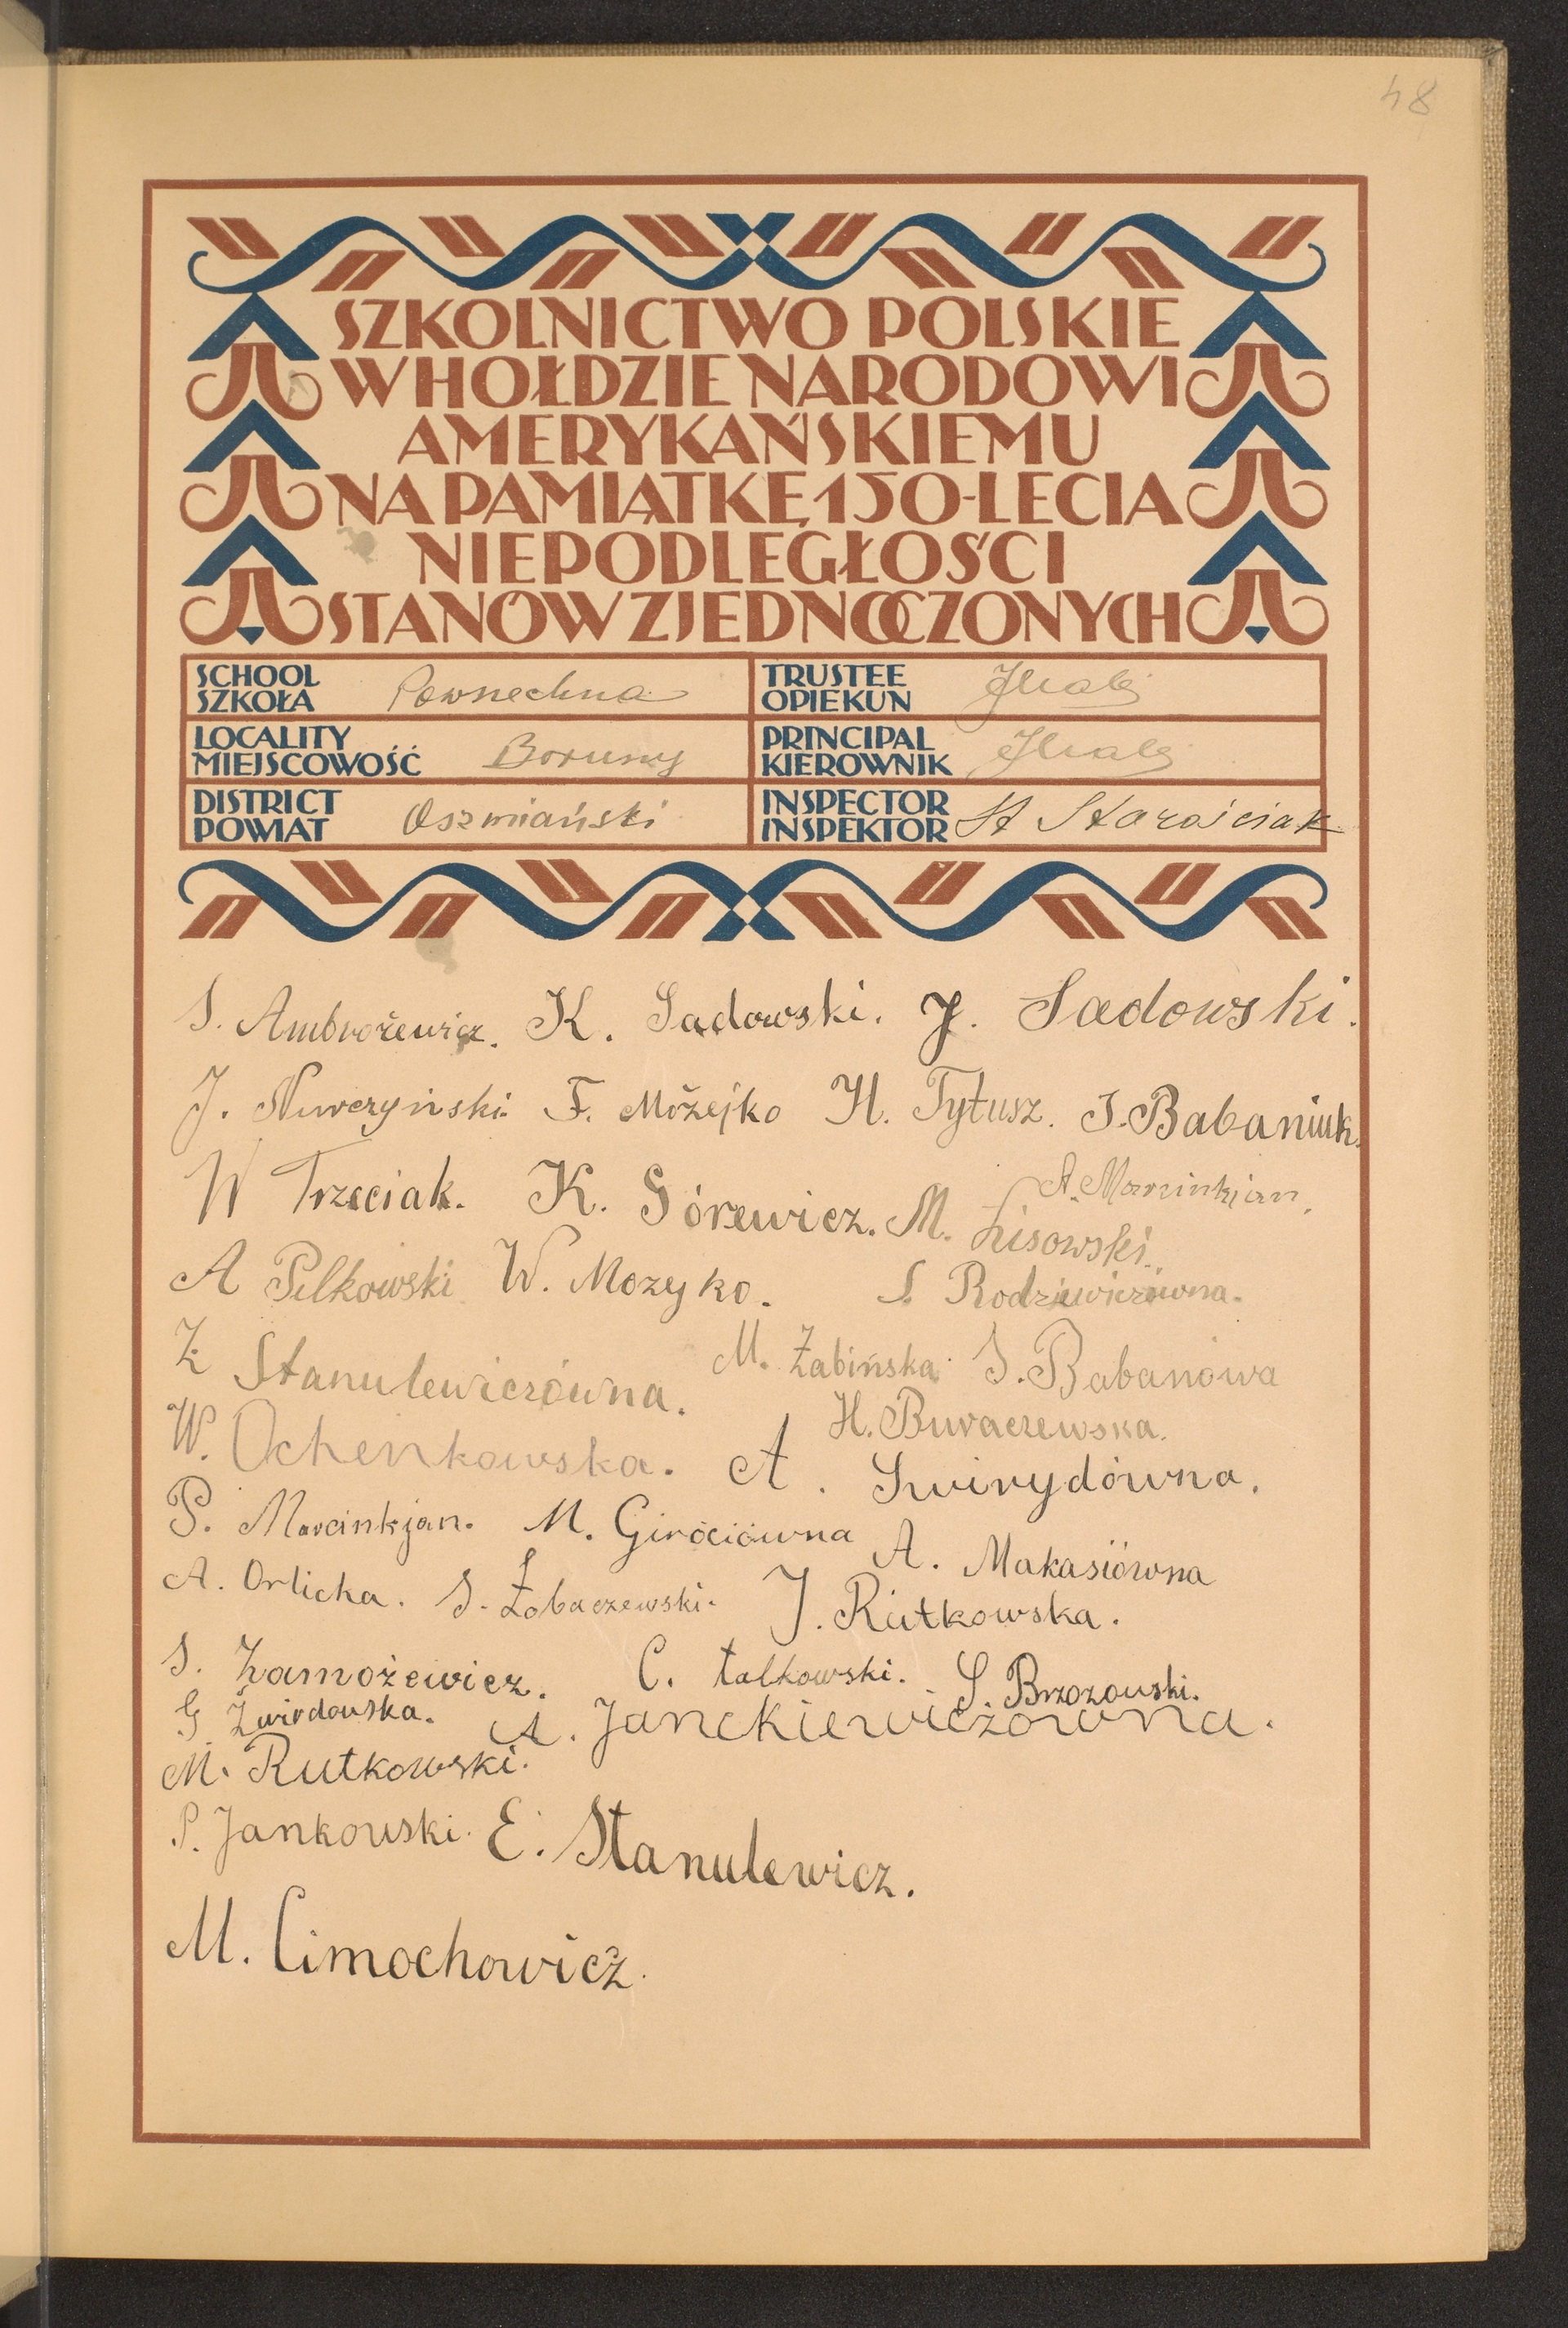 48
SZKOLNICTWO POLSKIE
W HOŁDZIE NARODOWI
AMERYKAŃSKIEMU
NA PAMIĄTKĘ 150-LECIA
NIEPODLEGŁOŚCI
STANÓW ZJEDNOCZONYCH
SCHOOL
SZKOŁA Powszechna
TRUSTEE
OPIEKUN
LOCALITY
MIEJSCOWOŚĆ Boruny
PRINCIPAL
KIEROWNIK
DISTRICT
POWIAT Oszmiański
INSPECTOR
INSPEKTOR St Starościak
S. Ambrożewicz. K. Sadowski. J. Sadowski.
J. Nuwczyński F. Możejko H. Tytusz. J. Babaniuk.
W Trzeciak. K. Górewicz. M. Lisowski. A. Marcinkjan.
A Pilkowski W. Mozyko. S. Rodziewiczówna.
Z Stanulewiczówna. M. Żabińska J. Babanowa
W. Ochenkowska. H. Buraczewska.
A. Swirydówna.
P. Marcinkjan. M. Giróciówna A. Makasiówna
A. Orlicka. S. Łobaczewski. J. Rutkowska.
S. Zamożewicz. C. Łalkowski. S. Brzozowski.
G Żwirdowska. A. Janckiewiczówna.
M. Rutkowski.
P. Jankowski. E. Stanulewicz.
M. Cimochowicz.